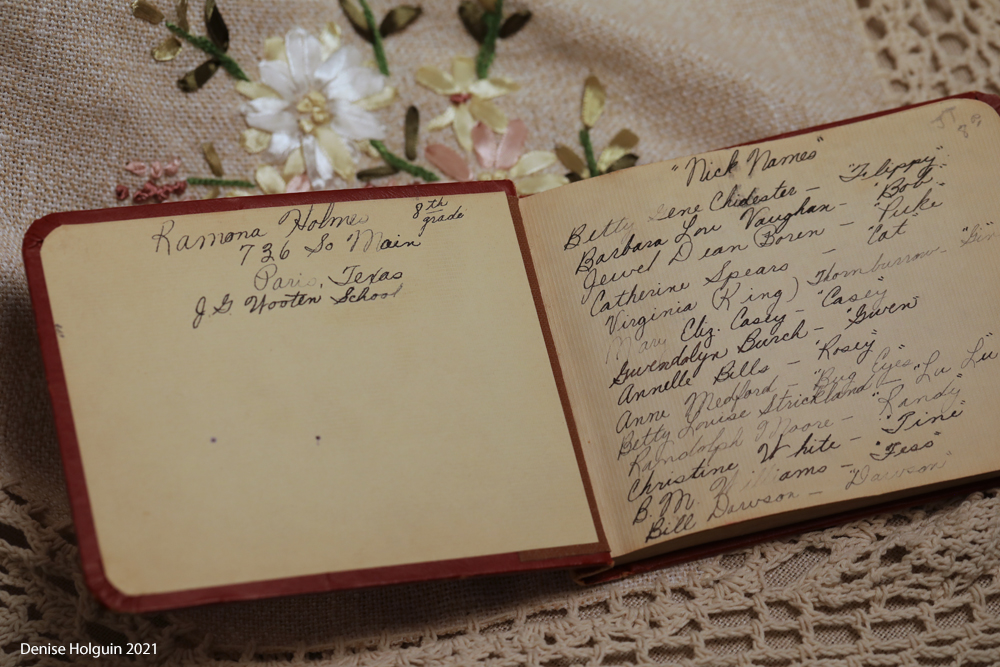 Ramona Holmes 8th grade
736 So Main
Paris, Texas
J.G. Wooten School
"Nick Names"
Betty Gene Chidester - "Flippy"
Barbara Lou Vaughan - "Bob"
Jewel Dean Boren - "Puke"
Catherine Spears - "Cat"
Virginia (King) Thornburrow - "Gin
Mary Eliz. Casey - "Casey"
Gwendolyn Burch - "Gwen"
Annelle Bills - "Rosey"
Anne Medford - "Bug Eyes"
Betty Louise Strickland - "La Lu"
Randolph Moore - "Randy"
Christine White - "Tine"
B.M. Williams - "Tess"
Bill Dawson - "Dawson"
Denise Holguin 2021